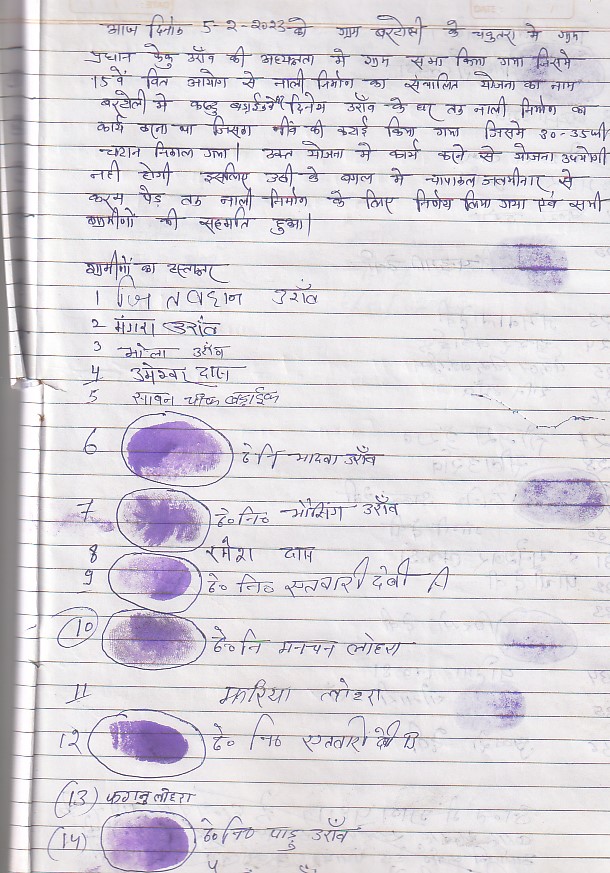 आज दिनांक 5-2-2023 को ग्राम बरटोली के चबुतरा मे ग्राम
प्रधान उराँव की अध्यक्षता में ग्राम सभा किया गया जिसमे
15 वें वित आयोग से नाली निर्माण का संचालित योजना का नाम
बरटोली में दिनेश उराँव के घर तक नाली निर्माण का
कार्य होना था जिसका नींव की कटाई किया गया जिसमे 30-35 फी
चटान निकल गया। उक्त योजना मे कार्य करने से योजना उपयोगी
नही होगी इसलिए उसी के बगल मे चापाकल जलमीनार से
करम पेड़ तक नाली निर्माण के लिए निर्णय लिया गया एवं सभी
ग्रामीणों की सहमति हुआ।
ग्रामीणों का हस्ताक्षर
1 उराँव
2 मंगरा उराँव
3 भोला उराँव
4 उमेश्वर दास
5 सावन चीक बड़ाईक
6 टे नि मादवा उराँव
7 टे० नि० भौसिंग उराँव
8 रमेश दास
9 टे० नि० सतवारी देवी A
10 टे० नि मनचन लोहरा
11 झरिया लोहरा
12 टे० नि० सतवारी देवी B
(13) फगनु लोहरा
(14) टे० नि० पाड़ु उराँव